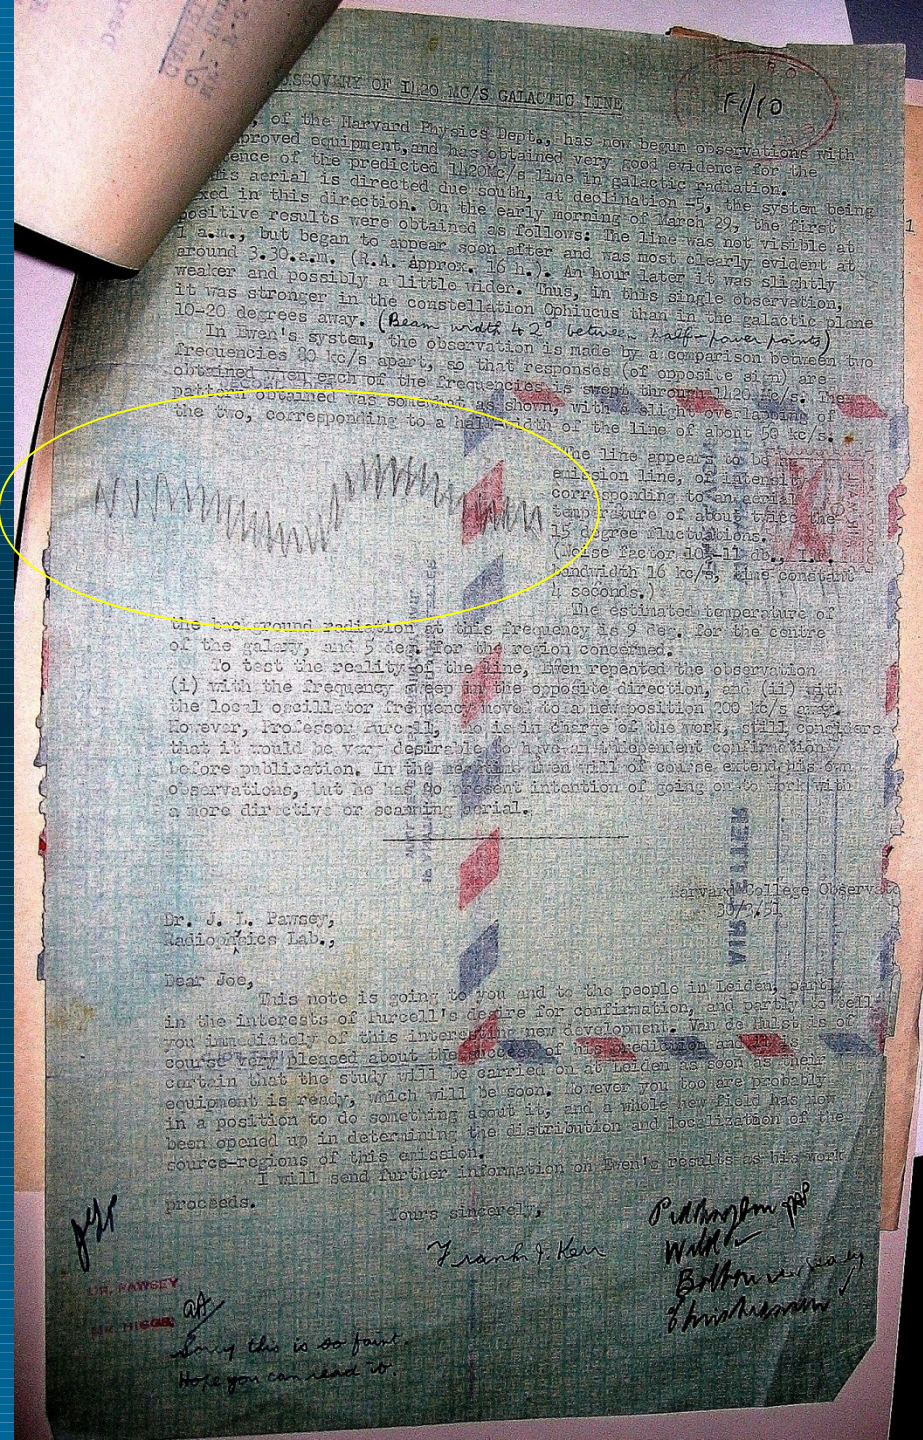 ISCOVERY OF 1420 MC/S GALACTIC LINE
F1/10
, of the Harvard Physics Dept., has now begun observations with
proved equipment, and has obtained very good evidence for the
ence of the predicted 1420Mc/s line in galactic radiation.
is aerial is directed due south, at declination -5, the system being
ed in this direction. On the early morning of March 29, the first
positive results were obtained as follows: The line was not visible at
a.m., but began to appear soon after and was most clearly evident at
around 3.30.a.m. (R.A. Approx. 16 h.). An hour later it was slightly
weaker and possibly a little wider. Thus, in this single observation,
it was stronger in the constellation Ophiucus than in the galactic plane
10-20 degrees away. (Beam width 42° between half-power points)
In Ewen's system, the observation is made by a comparison between two
frequencies 80 kc/s apart, so that responses (of opposite sign) are
obtained when each of the frequencies is swept through 1420 kc/s. The
pattern obtained was somewhat as shown, with a slight overlapping of
the two, corresponding to a half-width of the line of about 50 kc/s.
The line appears to be an
emission line, of intensity
corresponding to an aerial
temperature of about twice the
15 degree fluctuations.
(Noise factor 10-11 db., I.F.
bandwidth 16 kc/s, time constant
4 seconds.)
The estimated temperature of
the background radiation at this frequency is 9 deg. for the centre
of the galaxy, and 5 deg. for the region concerned.
To test the reality of the line, Ewen repeated the observation
(i) with the frequency sweep in the opposite direction, and (ii) with
the local oscillator frequency moved to a new position 200 kc/s away.
However, Professor Purcell, who is in charge of the work, still considers
that it would be very desirable to have an independent confirmation
before publication. In the meantime Ewen will of course extend his own
observations, but he has no present intention of going on to work with
a more directive or scanning aerial.
AIR LETTER
Harvard College Observato
30/3/51
Dr. J. L. Pawsey,
Radiophysics Lab.,
Dear Joe,
This note is going to you and to the people in Leiden, partly
in the interests of Purcell's desire for confirmation, and partly to tell
you immediately of this interesting new development. Van de Hulst is of
course very pleased about the success of his prediction and it is
certain that the study will be carried on at Leiden as soon as their
equipment is ready, which will be soon. However you too are probably
in a position to do something about it, and a whole new field has now
been opened up in determining the distribution and localization of the
source-regions of this emission.
I will send further information on Ewen's results as his work
proceeds.
Yours sincerely,
Frank J. Kerr
Piddington
Wild
Bolton
Christiansen
DR. PAWSEY
Sorry this is so faint.
Hope you can read it.